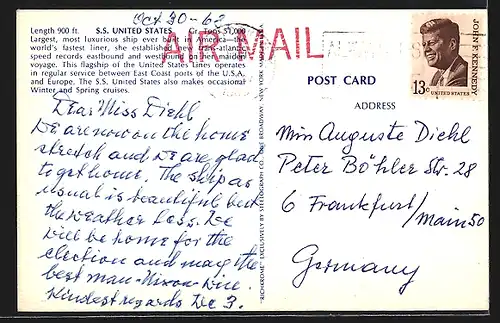 Oct 30-68
Length 900 ft. S.S. UNITED STATES Gr. Tons 51,000
Largest, most luxurious ship ever built in America—the
world's fastest liner, she established new trans-atlantic
speed records eastbound and westbound on her maiden
voyage. This flagship of the United States Lines operates
in regular service between East Coast ports of the U.S.A.
and Europe. The S.S. United States also makes occasional
Winter and Spring cruises.
AIR MAIL
JOHN F. KENNEDY
13c
UNITED STATES
POST CARD
ADDRESS
Dear Miss Diehl
We are now on the home
stretch and we are glad
to get home. The ship as
usual is beautiful but
the weather less. We
will be home for the
election and may the
best man - Nixon - win.
Kindest regards We 3.
Miss Auguste Diehl
Peter Böhler Str. 28
6 Frankfurt/Main 50
Germany
"RICHROME" EXCLUSIVELY BY STEELOGRAPH CO. BROADWAY, NEW YORK